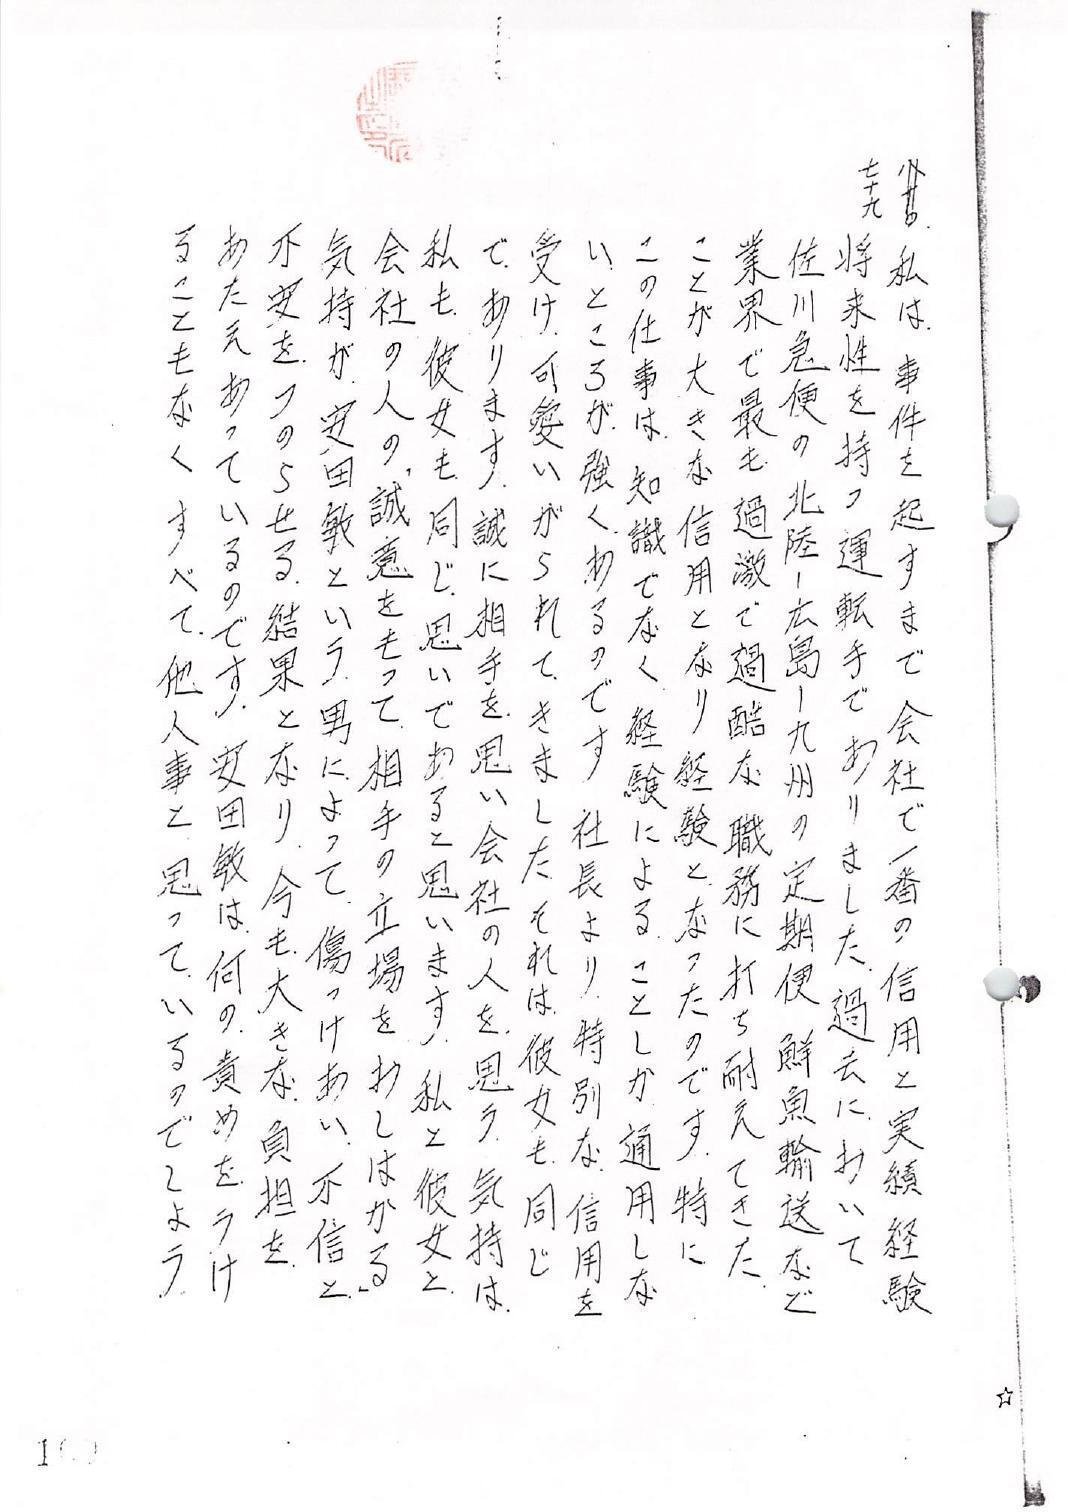 七十九
私は、事件を起すまで会社で一番の信用と実績経験
将来性を持つ運転手でありました、過去に、おいて
佐川急便の北陸ー広島ー九州の定期便鮮魚輸送など
業界で最も過激で過酷な職務に打ち耐えてきた
ことが大きな信用となり経験となったのです、特に
この仕事は、知識でなく経験によることしか通用しな
いところが、強くあるのです社長より、特別な信用を
受け、可愛いがられてきましたそれは、彼女も同じ
で、あります、誠に相手を、思い会社の人を、思う、気持は、
私も、彼女も、同じ、思いであると思います、私と彼女と
会社の人の、「誠意をもって、相手の立場をおしはかる」
気持が、安田敏という、男によって、傷つけあい、不信と
不安を、つのらせる、結果となり、今も、大きな、負担を
あたえあっているのです、安田敏は、何の、責めを、うけ
ることもなくすべて、他人事と、思って、いるのでしょう、
☆